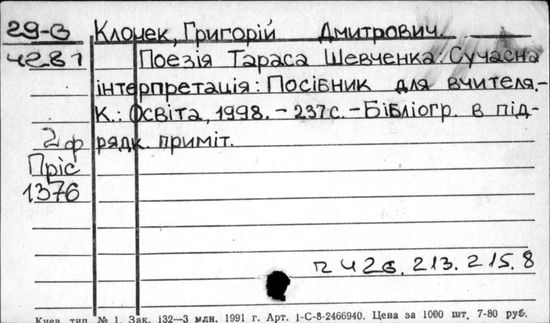 29-В Клочек, Григорій Дмитрович.
4281 Поезія Тараса Шевченка: Сучасна
інтерпретація: Посібник для вчителя.-
К.: Освіта, 1998. - 237с. - Бібліогр. в під-
2ф рядк. приміт.
Пріс
1376
п 426. 213. 215. 8
Киев. тип. № 1. Зак. 132—3 млн. 1991 г. Арт. 1-С-8-2466940. Цена за 1000 шт. 7-80 руб.